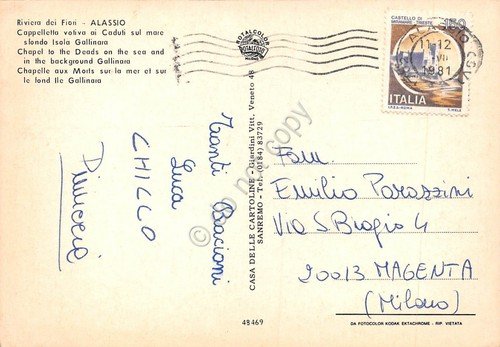 Riviera dei Fiori - ALASSIO
Cappelletta votiva ai Caduti sul mare
sfondo Isola Gallinara
Chapel to the Deads on the sea and
in the background Gallinara
Chapelle aux Morts sur la mer et sur
le fond Ile Gallinaia
ROTALCOLOR
CASTELLO DI
MIRAMARE - TRIESTE
150
11-12
1981
ITALIA
Tanti Bacioni
Luca
CHICCO
CASA DELLE CARTOLINE - Giardini Vitt. Veneto 48
SANREMO - Tel. (0184) 83729
Fam
Emilio Parazzini
Via S. Biagio 4
20013 MAGENTA
(Milano)
48469
DA FOTOCOLOR KODAK EKTACHROME - RIP. VIETATA